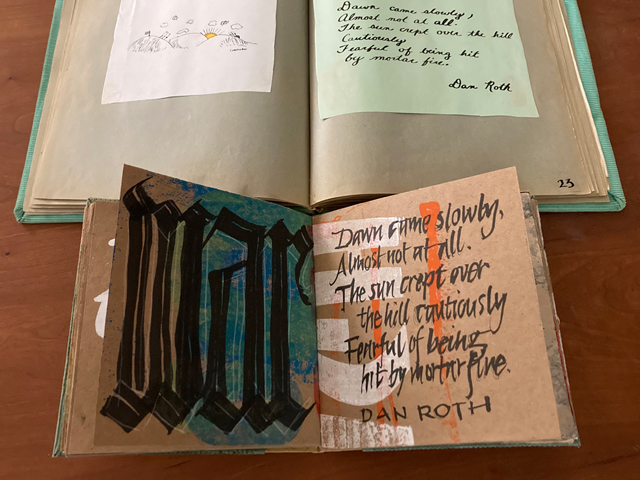 Dawn came slowly,
Almost not at all.
The sun crept over the hill
Cautiously
Fearful of being hit
by mortar fire.
Dan Roth
23
war
Dawn came slowly,
Almost not at all.
The sun crept over
the hill cautiously
Fearful of being
hit by mortar fire.
DAN ROTH